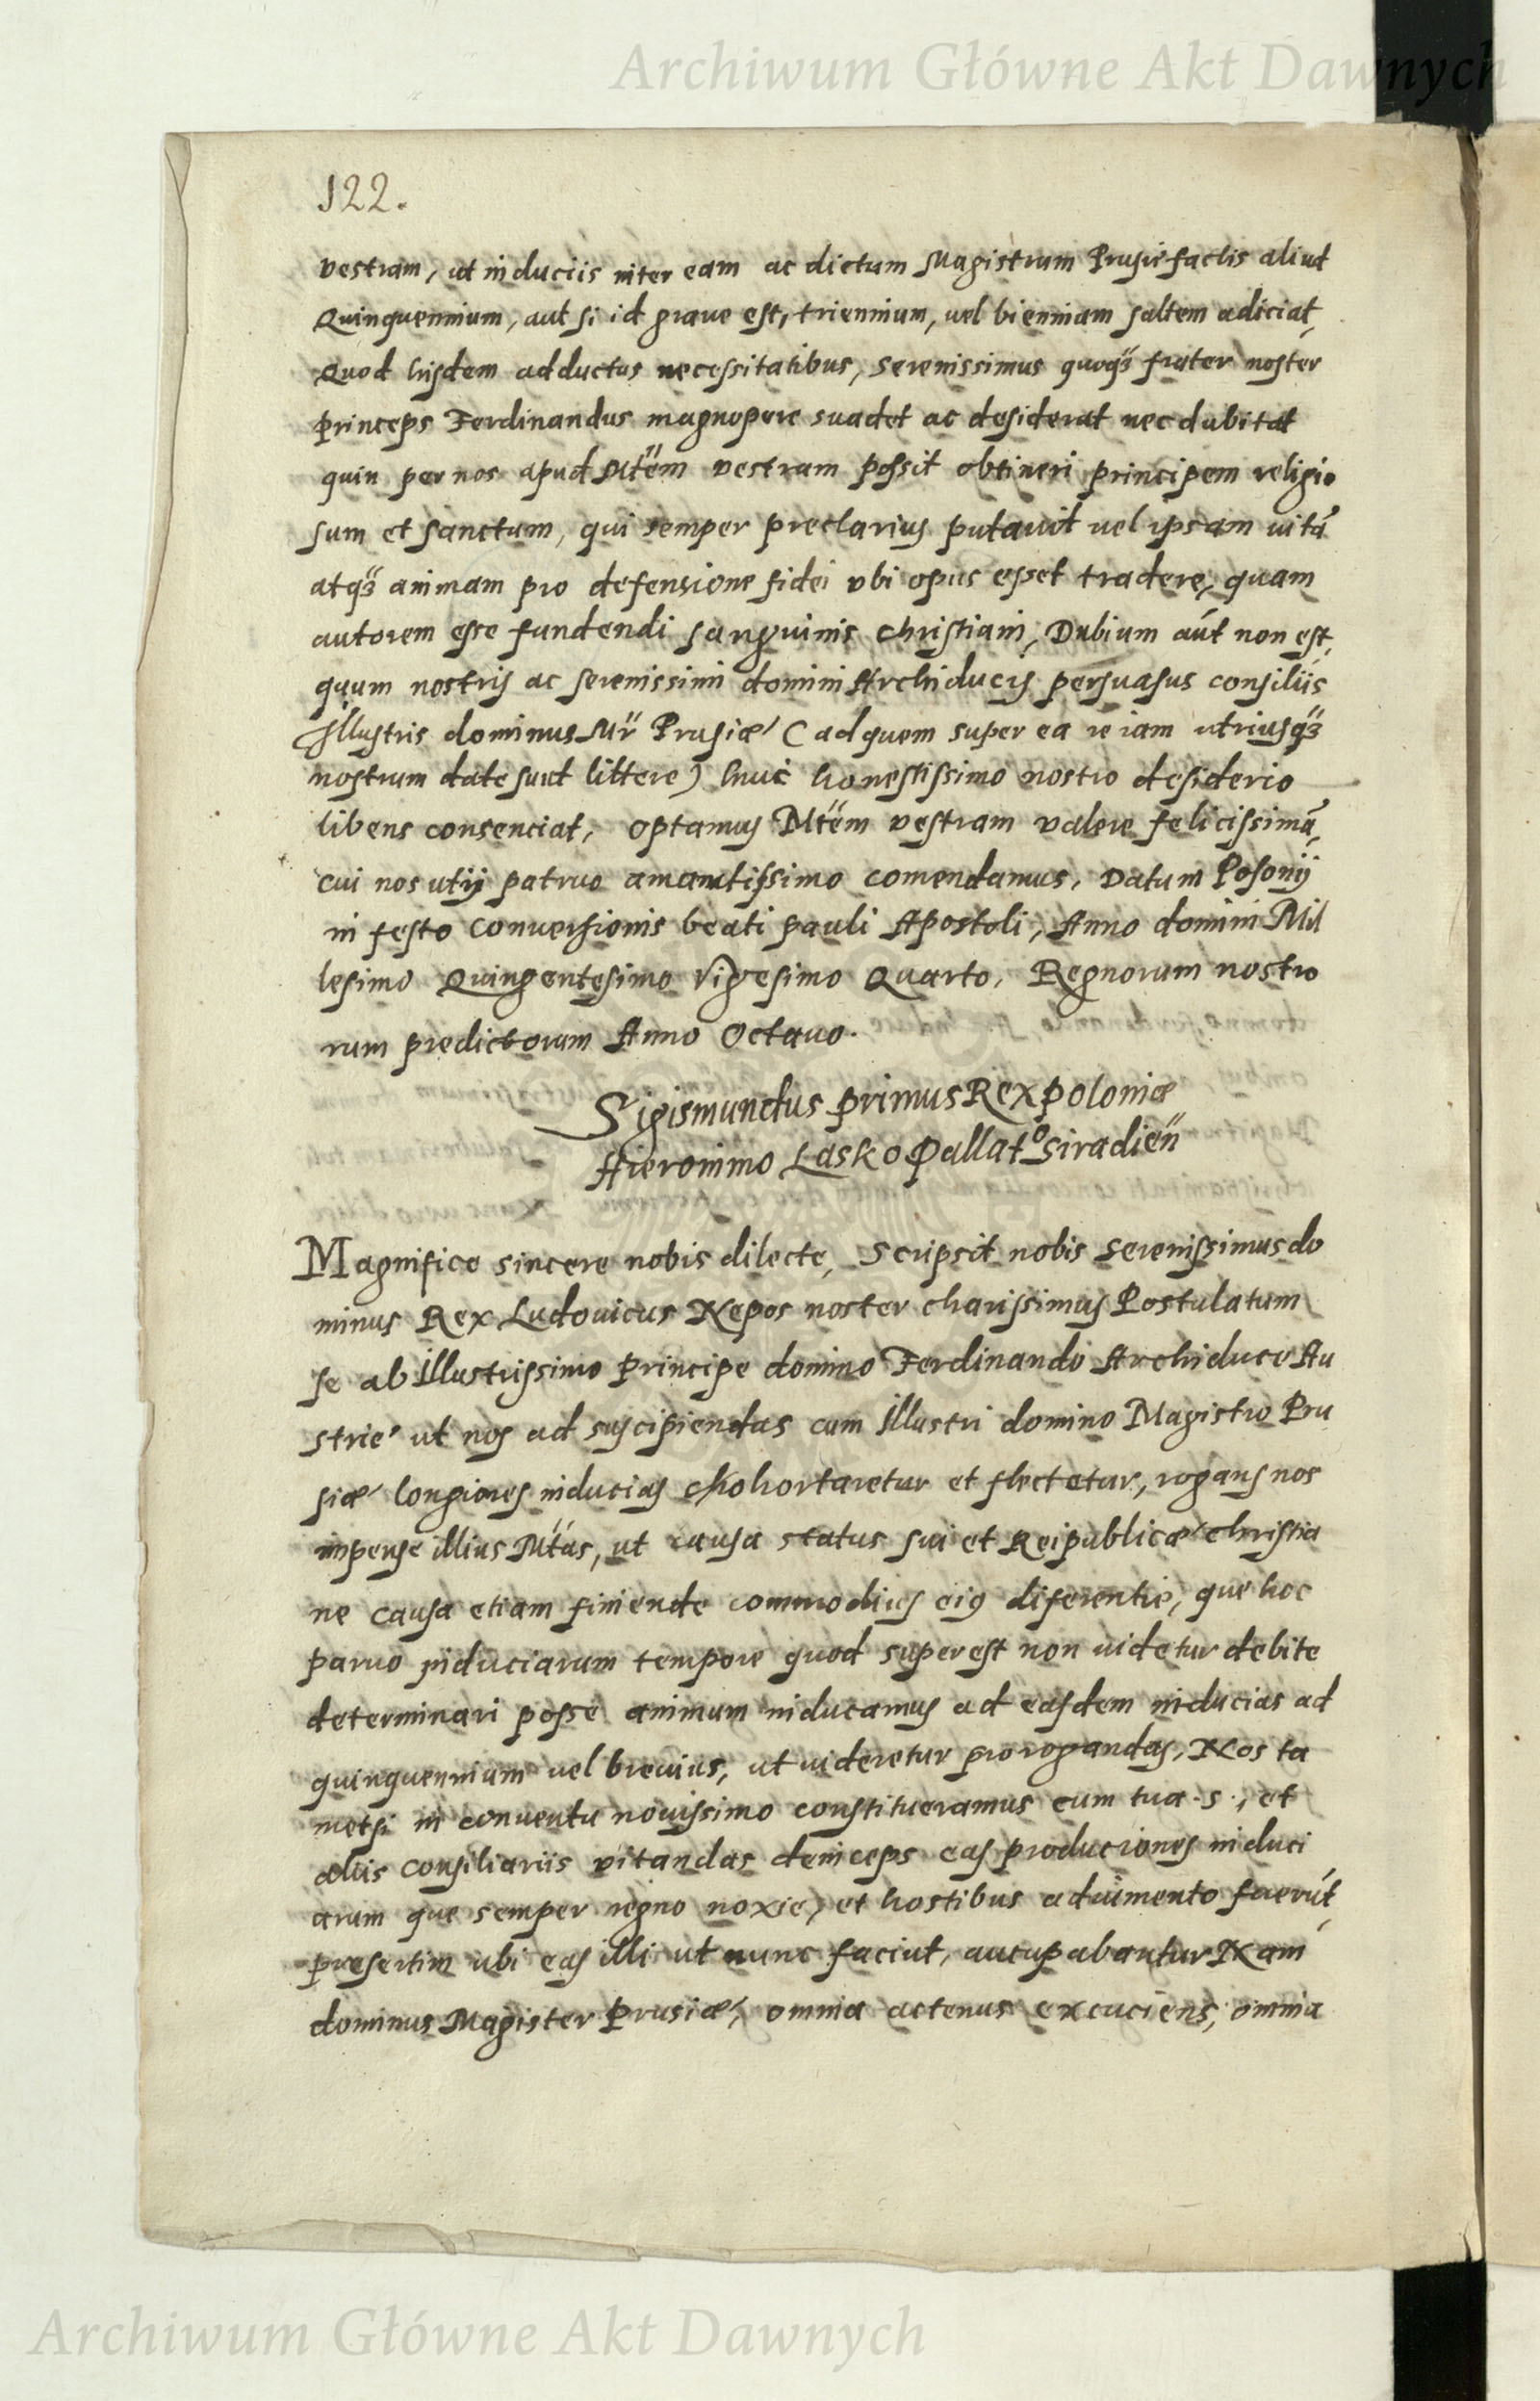 Archiwum Główne Akt Dawnych
122.
vestram, ut induciis inter eam ac dictum Magistrum Prusie factis aliud
Quinquennium, aut si id graue est, triennium, uel biennium saltem adiciat,
Quod hisdem adductus necessitatibus, serenissimus quoqꝫ frater noster
princeps Ferdinandus magnopere suadet ac desiderat nec dubitat
quin per nos apud Mtem vestram possit obtineri principem religio
sum et sanctum, qui semper preclarius putauit uel ipsam uitā
atqꝫ animam pro defensione fidei vbi opus esset tradere, quam
autorem esse fundendi sanguinis christiani, Dubium aūt non est,
quum nostris ac serenissimi domini Archiducis persuasus consiliis
Illustris dominus Mr̄ Prusiæ (ad quem super ea re iam utriusqꝫ
nostrum date sunt littere) huic honestissimo nostro desiderio
libens consenciat, optamus Mtem vestram valere felicissimā,
cui nos utij patruo amantissimo comendamus, Datum Posonij
in festo conuersionis beati pauli Apostoli, Anno domini Mil
lesimo Quingentesimo Vigesimo Quarto, Regnorum nostro
rum predictorum Anno Octauo.
Sigismundus primus Rex poloniæ
Hieronimo Lasko Pallatº Siradien̄
Magnifice sincere nobis dilecte, Scripsit nobis serenissimus do
minus Rex Ludouicus Nepos noster charissimus Postulatum
se ab Illustrissimo principe domino Ferdinando Archiduce Au
strie ut nos ad suscipiendas cum Illustri domino Magistro Pru
siæ longiores inducias chohortaretur et flectetur, rogans nos
impense illius Mtas, ut causa status sui et Reipublicæ christia
ne causa etiam finiende commodius eiꝯ diferentie, que hoc
paruo induciarum tempore quod superest non uidetur debite
determinari posse animum inducamus ad easdem inducias ad
quinquennium uel breuius, ut uideretur prorogandas, Nos ta
metsi in conuentu nouissimo constitueramus cum tua .s., et
aliis consiliariis vitandas deinceps eas produciones induci
arum que semper regno noxie, et hostibus adiumento fuerūt,
presertim ubi eas illi ut nunc faciut, aucupabantur Nam
dominus Magister Prusiæ, omnia actenus excuciens, omnia
Archiwum Główne Akt Dawnych